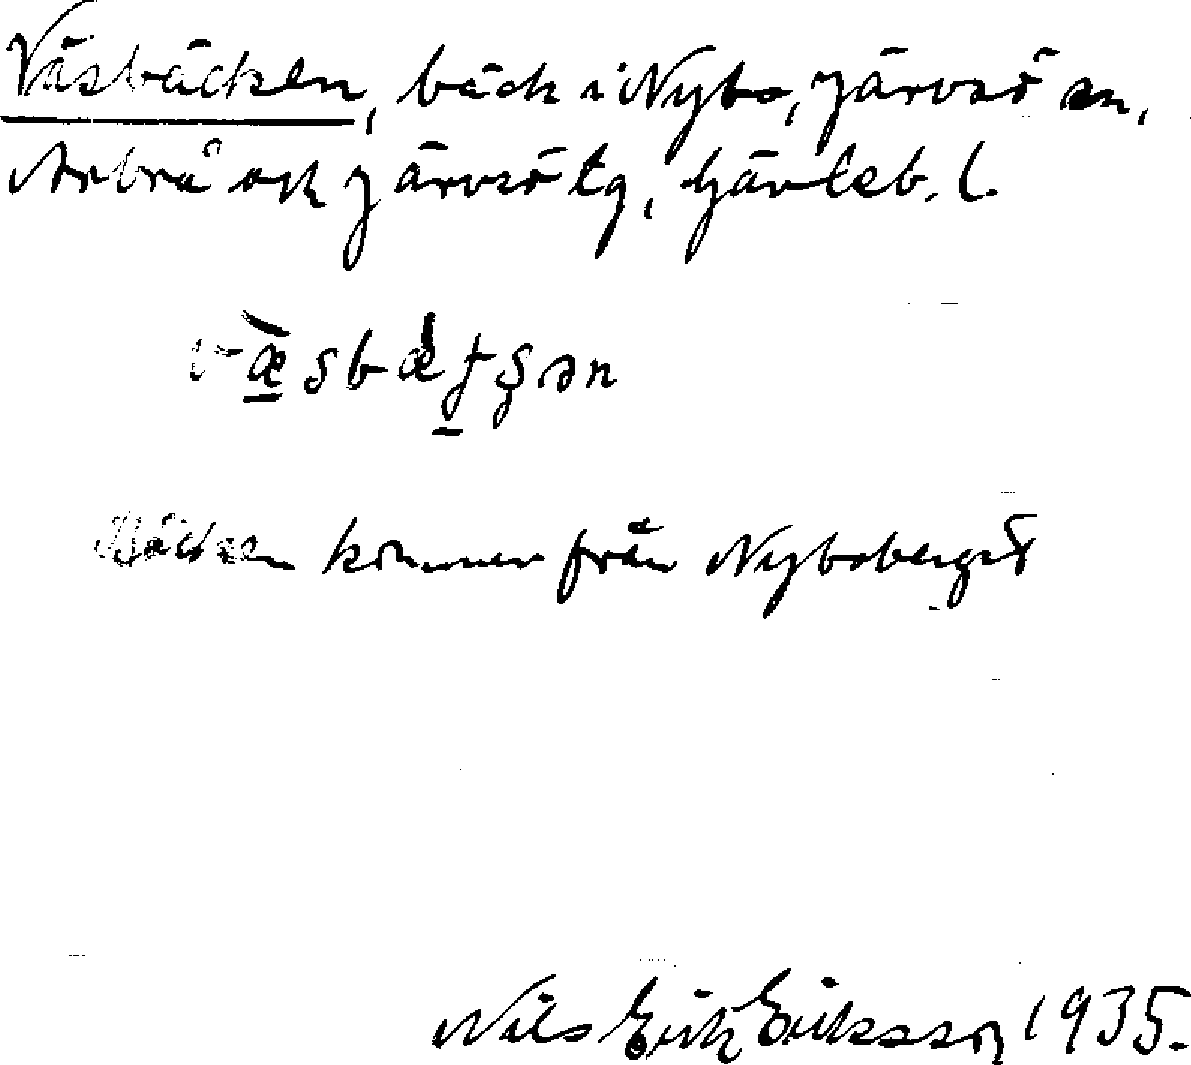 Väsbäcken, bäck i Nybo, Järvsö sn,
Arbrå och Järvsö tg, Gävleb. l.
Bäcken kommer från Nyboberget
Nils Erik Eriksson 1935.